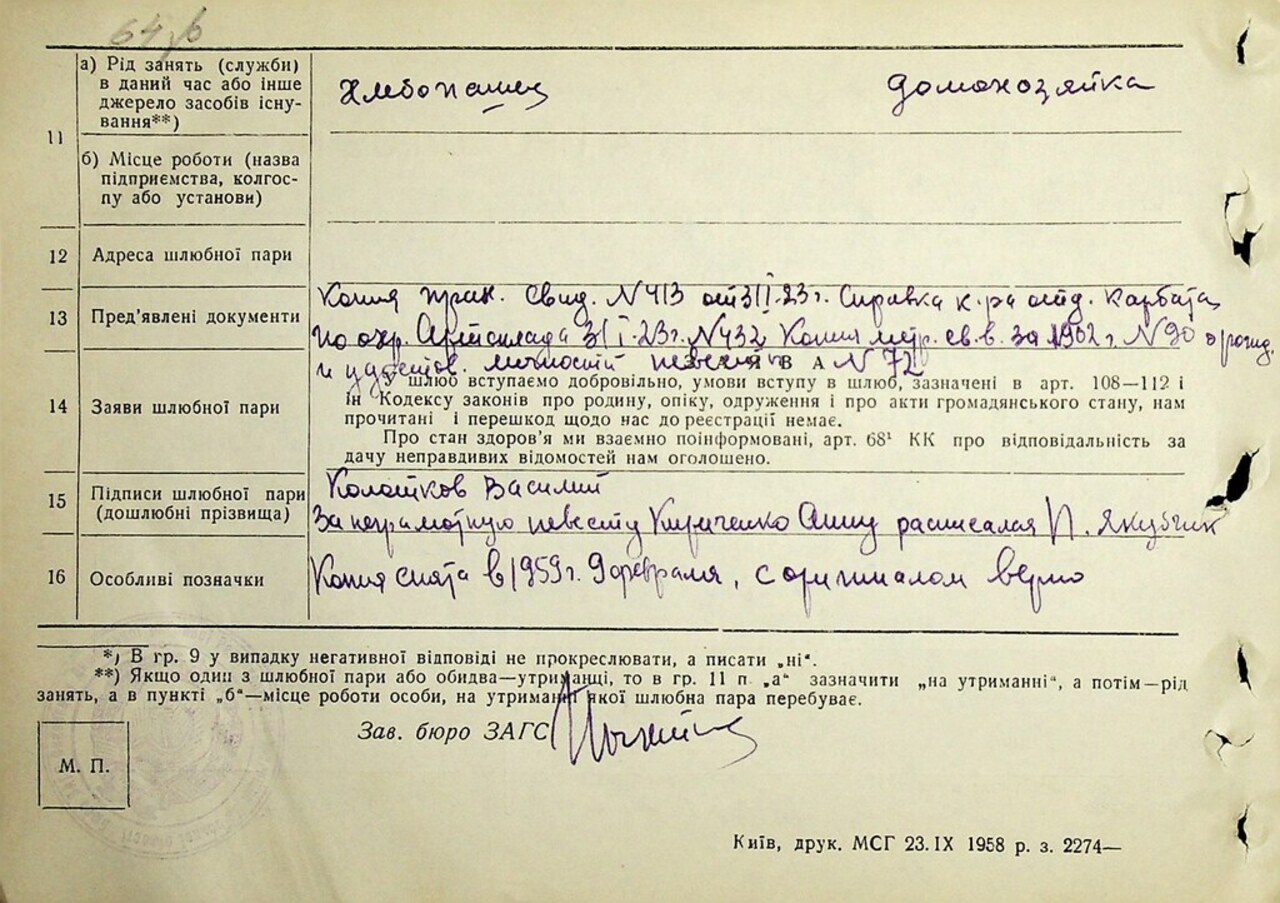 64 зв
11
а) Рід занять (служби)
в даний час або інше
джерело засобів існу-
вання**)
Хлебопашец
Домохозяйка
б) Місце роботи (назва
підприємства, колгос-
пу або установи)
12 Адреса шлюбної пари
13 Пред'явлені документи
Копия Свид. N 413 от 3/II-23г. Справка к-ра отд.
по охр. Артсклада 3/I-23г. N 432, Копия метр. св. в. за 1902 г. N 90 о рожд.
и удостов. личности невесты N 72
ЗАЯВА
14 Заяви шлюбної пари
У шлюб вступаємо добровільно, умови вступу в шлюб, зазначені в арт. 108—112 і
ін Кодексу законів про родину, опіку, одруження і про акти громадянського стану, нам
прочитані і перешкод щодо нас до реєстрації немає.
Про стан здоров'я ми взаємно поінформовані, арт. 68¹ КК про відповідальність за
дачу неправдивих відомостей нам оголошено.
15 Підписи шлюбної пари
(дошлюбні прізвища)
Колотков Василий
За неграмотную невесту Кириченко Анну расписался П. Якубчик
16 Особливі позначки
Копия снята в 1959г. 9 февраля, с оригиналом верно
*) В гр. 9 у випадку негативної відповіді не прокреслювати, а писати „ні“.
**) Якщо один з шлюбної пари або обидва—утриманці, то в гр. 11 п. „а“ зазначити „на утриманні“, а потім—рід
занять, а в пункті „б“—місце роботи особи, на утриманні якої шлюбна пара перебуває.
Зав. бюро ЗАГС
М. П.
Київ, друк. МСГ 23.IX 1958 р. з. 2274—